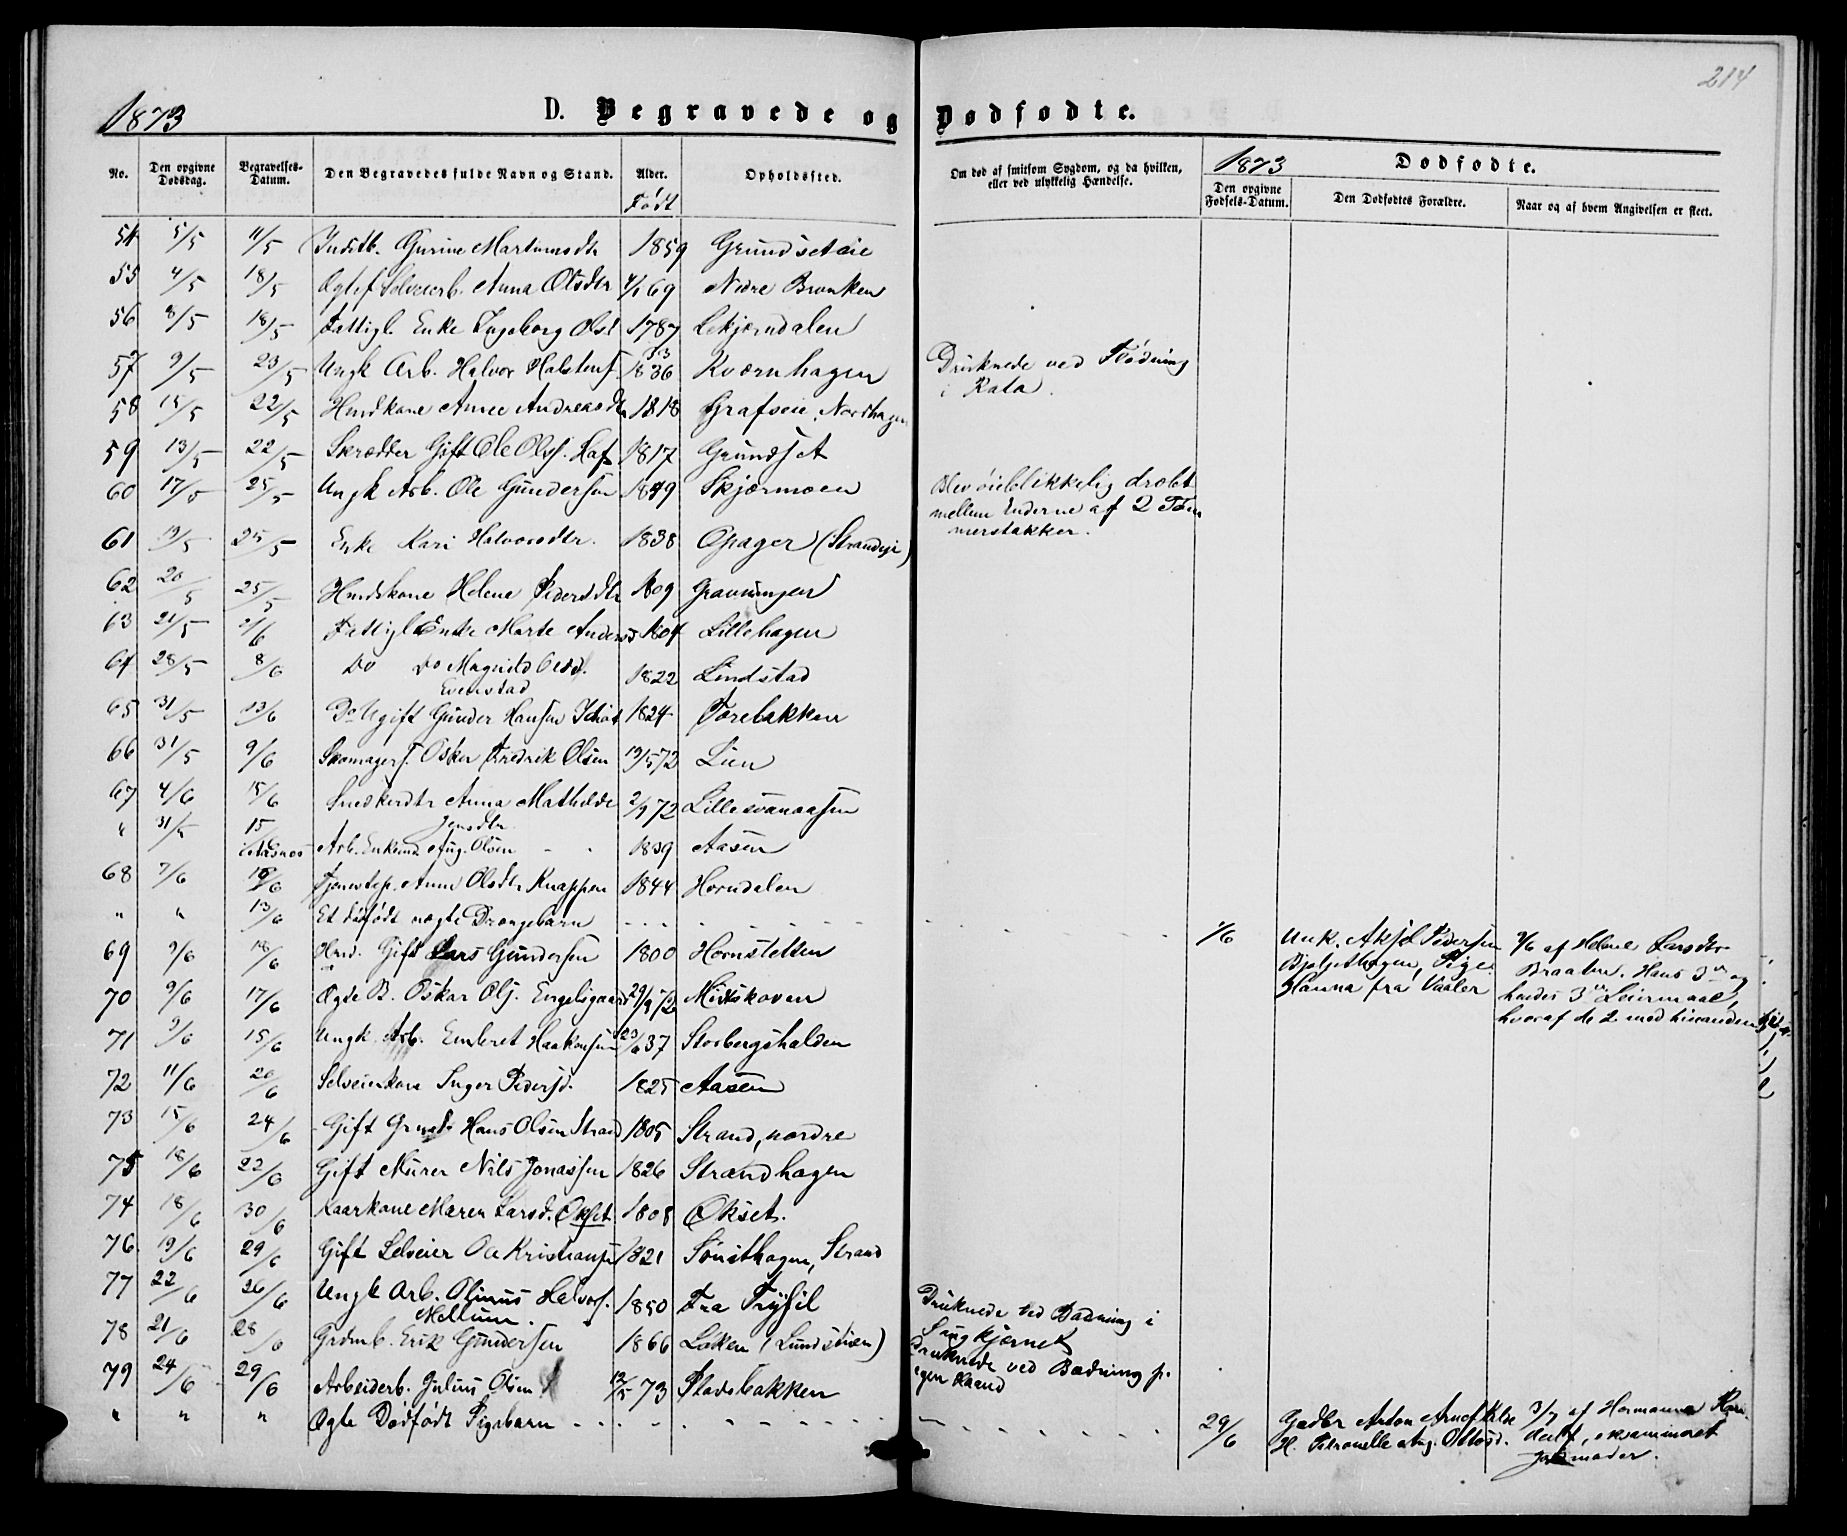 214
1873 D. Begravede og Dødfødte.
No. Den opgivne Dødsdag. Begravelses-Datum. Den Begravedes fulde Navn og Stand. Alder. Født Opholdssted. Om død af smitsom Sygdom, og da hvilken, eller ved ulykkelig Hændelse. 1873 Dødfødte.
Den opgivne Fødsels-Datum. Den Dødfødtes Forældre. Naar og af hvem Angivelsen er skeet.
54 5/5 11/5 Indstb. Gurine Martinusdtr 1859 Grundsetøie
55 4/5 18/5 Ægtef Selveierb. Anna Olsdtr 4/1 69 Nedre Brenken
56 8/5 18/5 Fattigl Enke Ingeborg Olsd 1787 Lekjerndalen
57 9/5 23/5 Ungk Arb. Halvor Halstens. 1836 33 Kværnhagen Druknede ved Flødning
i Rata.
58 15/5 22/5 Husdkone Anne Andreasdtr 1818 Grafseie, Nordhagen
59 13/5 22/5 Skrædder Gift Ole Ols. Haf 1817 Grundset
60 17/5 25/5 Ungk Arb. Ole Gundersen 1849 Skjærmoen Blev øieblikkelig dræbt
mellem Enderne af 2 Tøm
merstakker.
61 19/5 25/5 Enke Kari Halvorsdtr. 1838 Opager (Strandeie)
62 20/5 25/5 Husdskone Helene Pedersdtr 1809 Gravningen
63 21/5 2/6 Fattigl Enke Marte Andersd 1804 Lillehagen
64 28/5 8/6 Do Do Magnild Olsd. 1822 Lindstad
Evenstad
65 31/5 13/6 Do Ugift Gunder Hansen 1824 Torebakken
66 31/5 9/6 Skomagers. Oskar Fredrik Olsen 19/5 72 Lien
67 4/6 15/6 Snedkerdtr Anna Mathilde 2/9 72 Lillesvanaasen
Jensdtr.
" 31/5 15/6 Arb. Enkemd Aug. Olsen - - 1839 Aasen
i Aasnes
68 7/6 16/6 Tjenestep. Anne Olsdtr Knappen 1844 Horndalen
" " 13/6 Et dødfødt uægte Drengebarn - - - 1/6 Unk. Aksel Pedersen 9/6 af Helene Larsdtr
69 9/6 18/6 Hmd. Gift Lars Gundersen 1800 Hornsletten Bjølsethagen, Pige Braaten. Hans 3die og
70 9/6 17/6 Ægte B. Oskar Ols. Engelsgaard 29/9 72 Midtskoven Hanna fra Vaaler hendes 3die Leiermaal,
hvoraf de 2 med hinanden
71 9/6 15/6 Ungk. Arb. Embret Haakonsen 23/6 37 Storbergshalden
72 11/6 20/6 Selveierkone Inger Pedersd. 1825 Aasen
73 15/6 24/6 Gift Grmd. Hans Olsen Strand 1805 Strand, nordre
75 18/6 22/6 Gift Murer Nils Jonassen 1826 Strandhagen
74 18/6 30/6 Kaarkone Maren Larsd. Økset 1808 Økset.
76 19/6 29/6 Gift Selveier Ole Kristiansen 1821 Smithagen, Strand
77 22/6 26/6 Ungk Arb. Olinus Halvors. 1850 Fra Trysil Druknede ved Badning i
Mellum.
78 21/6 28/6 Grdmb. Erik Gundersen 1866 Løken (Lundstøen) Druknede ved Badning p.
egen Haand
79 24/6 29/6 Arbeiderb. Julius Olsen 12/5 73 Stadsbakken
" " " Ægte Dødfødt Pigebarn - - - 29/6 Gadbr Anton 3/7 af Hermanna
H. Petronelle Aug. Ottosd. examineret
Jordmoder.